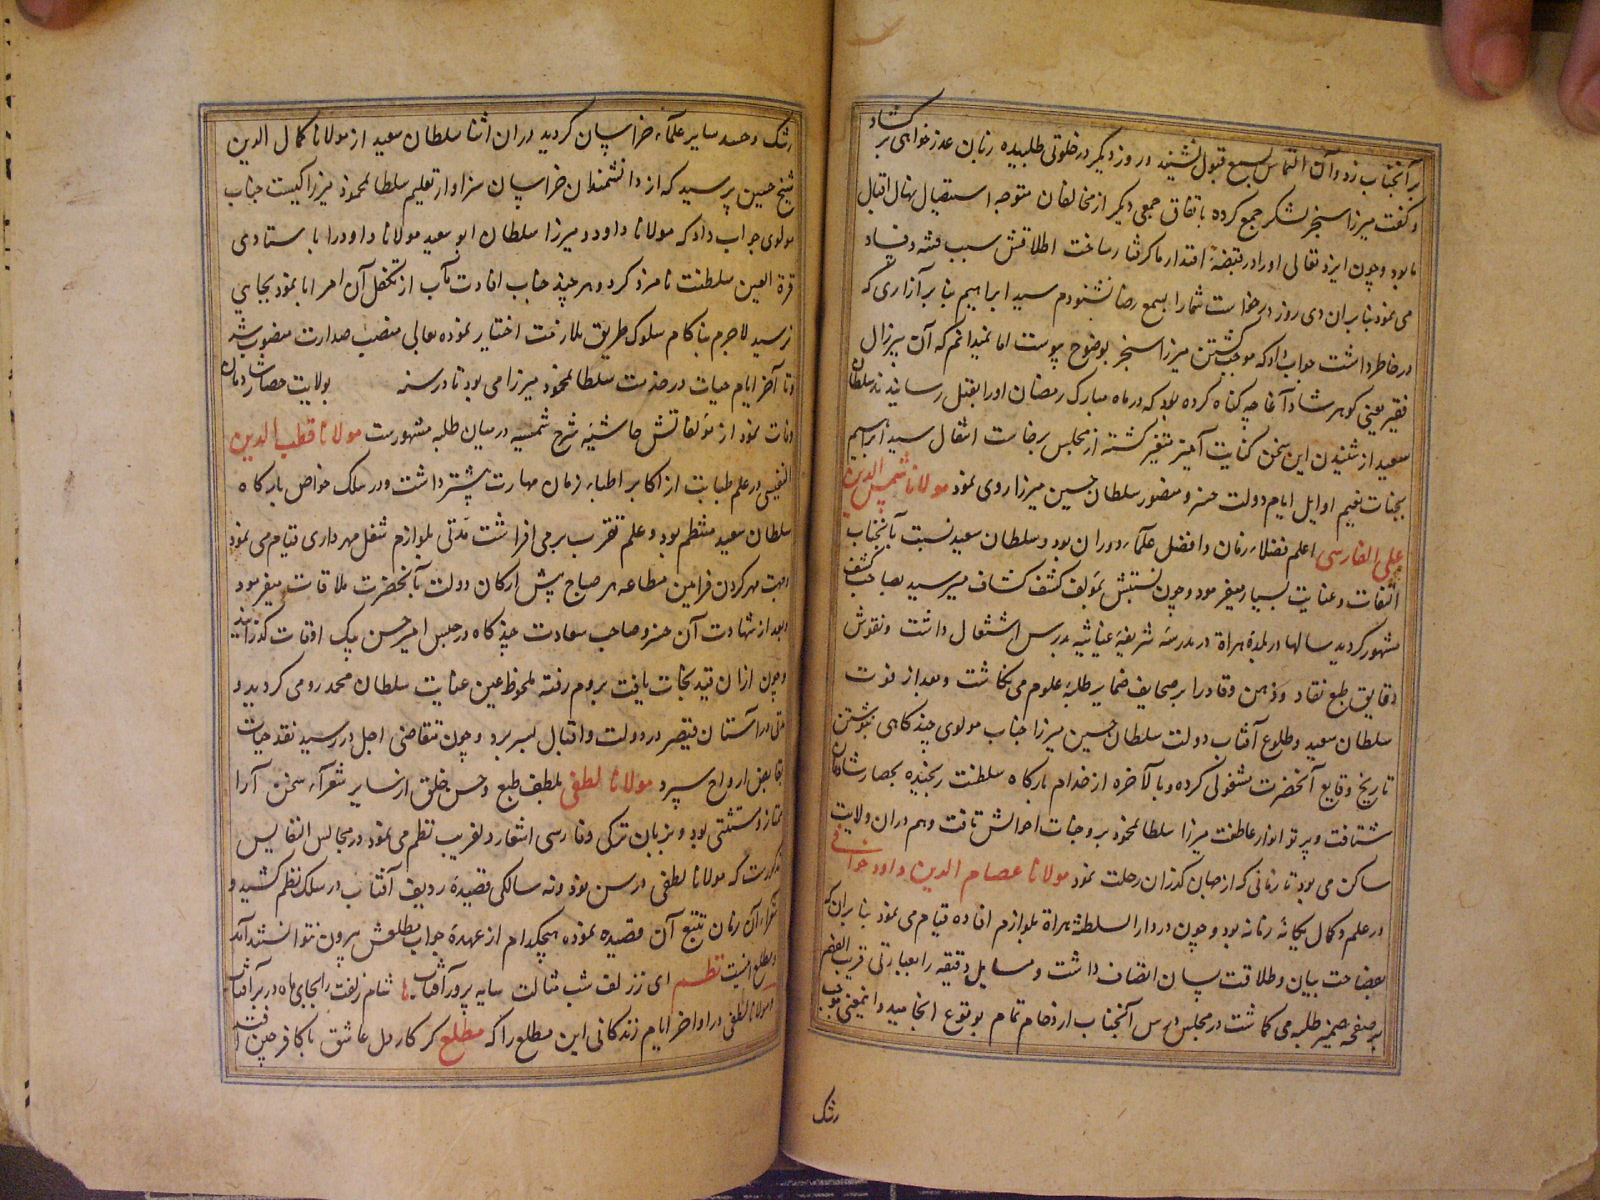 بر آنجناب زد و آن التماس بسمع قبول نشنید و روز دیگر در خلوتی طلبیده زبان عذرخواهی بر کشاد
و گفت میرزا سنجر لشکر جمع کرده باتفاق جمعی دیگر از مخالفان متوجه استیصال نهال اقبال
ما بود و چون ایزد تعالی او را در قبضهٔ اقتدار ما گرفتار ساخت اطلاقش سبب فتنه و فساد
می نمود بنابران دی روز درخواست شما را بسمع رضا نشنودم سید ابراهیم بنابر آزاری که
در خاطر داشت جواب داد که موجب کشتن میرزا سنجر بوضوح پیوست اما نمیدانم که آن پیرزال
فقیر یعنی گوهرشاد آغا چه گناه کرده بود که در ماه مبارک رمضان او را بقتل رسانیدند سلطان
سعید از شنیدن این سخن کنایت آمیز متغیر گشته از مجلس برخاست انتقال سید ابراهیم
بجنات نعیم اوایل ایام دولت خسرو منصور سلطان حسین میرزا روی نمود مولانا شمس الدین
علی الفارسی اعلم فضلاء زمان و افضل علماء دوران بود و سلطان سعید نسبت بآنجناب
التفات و عنایت بسیار میفرمود و چون نسبتش بمؤلف کشف کشاف میرسید بصاحب کشف
مشهور گردید سالها در بلدهٔ هراة در مدرسهٔ شریفهٔ غیاثیه بدرس اشتغال داشت و نقوش
دقایق طبع نقاد و ذهن وقاد را بر صحایف ضمایر طلبهٔ علوم می نگاشت و بعد از فوت
سلطان سعید و طلوع آفتاب دولت سلطان حسین میرزا جناب مولوی چند گاهی بنوشتن
تاریخ وقایع آنحضرت مشغولی کرده و بالآخره از خدام بارگاه سلطنت رنجیده بحصار شادمان
شتافت و پرتو انوار عاطفت میرزا سلطانمحمود بر وجنات احوالش تافت و هم دران ولایت
ساکن می بود تا زمانی که از جهان گذران رحلت نمود مولانا عصام الدین داود خوافی
در علم و کمال یگانهٔ زمانه بود و چون در دار السلطنه هراة بلوازم افاده قیام می نمود بنابران که
بفصاحت بیان و طلاقت لسان اتصاف داشت و مسایل دقیقه را بعبارتی قریب الفهم
بر صفحهٔ ضمیر طلبه می نگاشت در مجلس درس آنجناب ازدحام تمام بوقوع انجامید و اینمعنی موجب
رشک
رشک و حسد سایر علماء خراسان گردید دران اثنا سلطان سعید از مولانا کمال الدین
شیخ حسین پرسید که از دانشمندان خراسان سزاوار تعلیم سلطانمحمود میرزا کیست جناب
مولوی جواب داد که مولانا داود و میرزا سلطان ابو سعید مولانا داود را باستادی
قرة العین سلطنت نامزد کرد و هر چند جناب افادت مآب از تکفل آن امر ابا نمود بجایی
نرسید لاجرم بناکام سلوک طریق ملازمت اختیار نموده بعالی منصب صدارت منصوب شد
و تا آخر ایام حیات در خدمت سلطانمحمود میرزا می بود تا در سنه بولایت حصار شادمان
وفات نمود از مؤلفاتش حاشیهٔ شرح شمسیه در میان طلبه مشهورست مولانا قطب الدین
النفیسی در علم طبابت از اکابر اطباء زمان مهارت بیشتر داشت و در سلک خواص بارگاه
سلطان سعید منتظم بود و علم تقرب برمی افراشت مدتی بلوازم شغل مهرداری قیام می نمود
و جهت مهر کردن فرامین مطاعه هر صباح پیش ارکان دولت بآنحضرت ملاقات میفرمود
و بعد از شهادت آن خسرو صاحب سعادت چند گاه در حبس امیر حسن بیک اوقات گذرانید
و چون ازان قید نجات یافت بروم رفته ملحوظ عین عنایت سلطان محمد رومی گردید و
در آستان قیصر در دولت و اقبال بسر برد و چون متقاضی اجل در رسید نقد حیات
بقابض ارواح سپرد مولانا لطفی بلطف طبع و حسن خلق از سایر شعرآء سخن آرا
ممتاز و مستثنی بود و بزبان ترکی و فارسی اشعار دلفریب نظم می نمود در مجالس النفایس
مذکورست که مولانا لطفی در سن نود و نه سالگی قصیدهٔ ردیف آفتاب در سلک نظم کشید و
شعراء آن زمان تتبع آن قصیده نموده هیچکدام از عهدهٔ جواب مطلعش بیرون نتوانستند آمد
و مطلع اینست نظم ای ز زلف شب مثالت سایه پرور آفتاب شام زلفت را بجای ماه در بر آفتاب
و مولانا لطفی در اواخر ایام زندگانی این مطلع را که مطلع گر کار دل عاشق با کافر چین افتد